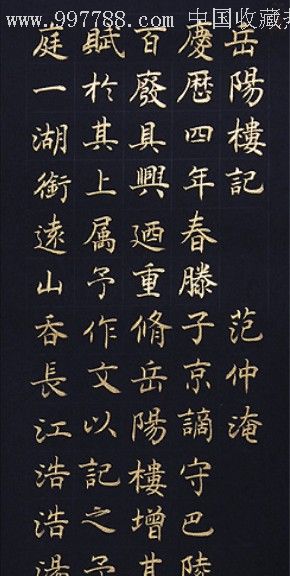 www.997788.com 中国收藏热
岳陽樓記 范仲淹
慶歷四年春滕子京謫守巴陵
百廢具興廼重脩岳陽樓增其
賦於其上属予作文以記之予
庭一湖銜遠山吞長江浩浩湯